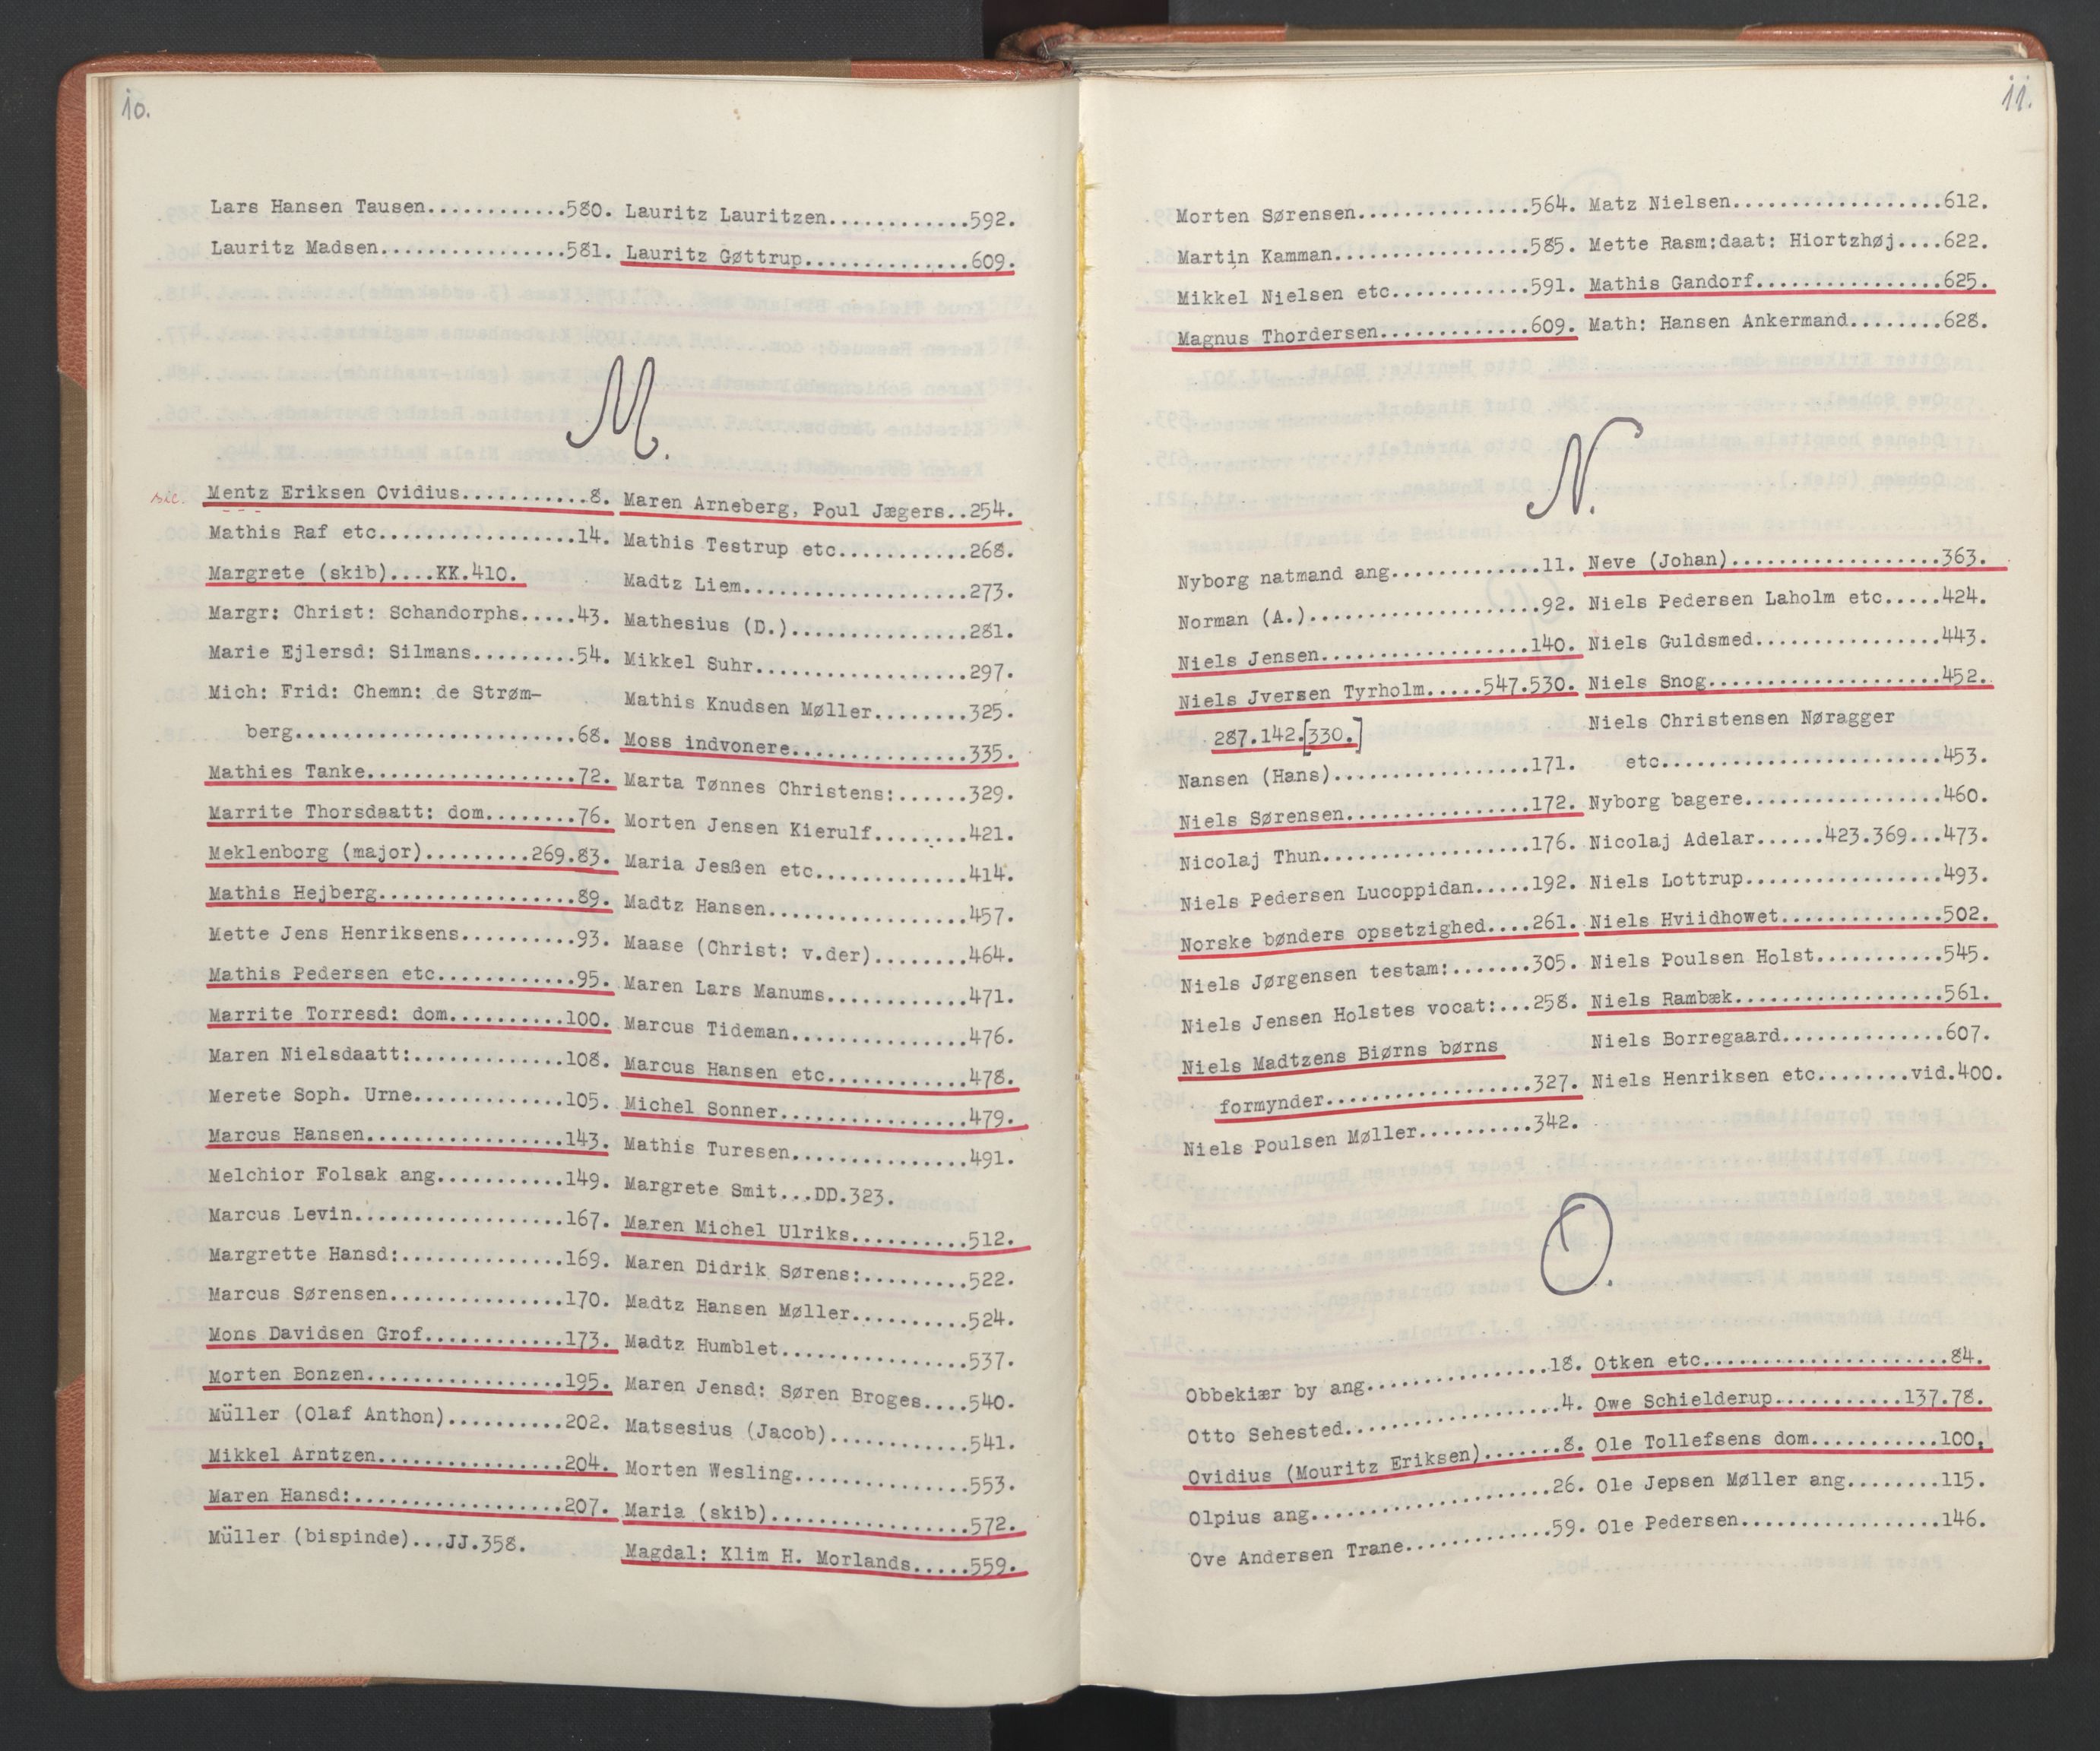 10.
Lars Hansen Tausen............580.
Lauritz Madsen................581.
Lauritz Lauritzen............592.
Lauritz Gøttrup..............609.
M.
sic.
Mentz Eriksen Ovidius...........8.
Mathis Raf etc.................14.
Margrete (skib)....KK.410.
Margr: Christ: Schandorphs.....43.
Marie Ejlersd: Silmans.........54.
Mich: Frid: Chemn: de Strøm-
berg........................68.
Mathies Tanke..................72.
Marrite Thorsdaatt: dom........76.
Meklenborg (major).........269.83.
Mathis Hejberg.................89.
Mette Jens Henriksens..........93.
Mathis Pedersen etc............95.
Marrite Torresd: dom..........100.
Maren Nielsdaatt:.............108.
Merete Soph. Urne.............105.
Marcus Hansen.................143.
Melchior Folsak ang...........149.
Marcus Levin..................167.
Margrette Hansd:..............169.
Marcus Sørensen...............170.
Mons Davidsen Grof............173.
Morten Bonzen.................195.
Müller (Olaf Anthon)..........202.
Mikkel Arntzen................204.
Maren Hansd:..................207.
Müller (bispinde)...JJ.358.
Maren Arneberg, Poul Jægers..254.
Mathis Testrup etc...........268.
Madtz Liem...................273.
Mathesius (D.)...............281.
Mikkel Suhr..................297.
Mathis Knudsen Møller........325.
Moss indvonere...............335.
Marta Tønnes Christens:......329.
Morten Jensen Kierulf........421.
Maria Jesßen etc.............414.
Madtz Hansen.................457.
Maase (Christ: v.der)........464.
Maren Lars Manums............471.
Marcus Tideman...............476.
Marcus Hansen etc............478.
Michel Sonner................479.
Mathis Turesen...............491.
Margrete Smit...DD.323.
Maren Michel Ulriks..........512.
Maren Didrik Sørens:.........522.
Madtz Hansen Møller..........524.
Madtz Humblet................537.
Maren Jensd: Søren Broges....540.
Matsesius (Jacob)............541.
Morten Wesling...............553.
Maria (skib).................572.
Magdal: Klim H. Morlands.....559.
11.
Morten Sørensen...............564.
Martin Kamman.................585.
Mikkel Nielsen etc............591.
Magnus Thordersen.............609.
Matz Nielsen..................612.
Mette Rasm:daat: Hiortzhøj....622.
Mathis Gandorf................625.
Math: Hansen Ankermand........628.
N.
Nyborg natmand ang.............11.
Norman (A.)....................92.
Niels Jensen..................140.
Niels Jversen Tyrholm.....547.530.
287.142.[330.]
Nansen (Hans).................171.
Niels Sørensen................172.
Nicolaj Thun..................176.
Niels Pedersen Lucoppidan.....192.
Norske bønders opsetzighed....261.
Niels Jørgensen testam:.......305.
Niels Jensen Holstes vocat:...258.
Niels Madtzens Biørns børns
formynder..................327.
Niels Poulsen Møller..........342.
Neve (Johan)..................363.
Niels Pedersen Laholm etc.....424.
Niels Guldsmed................443.
Niels Snog....................452.
Niels Christensen Nøragger
etc........................453.
Nyborg bagere.................460.
Nicolaj Adelar......423.369...473.
Niels Lottrup.................493.
Niels Hviidhowet..............502.
Niels Poulsen Holst...........545.
Niels Rambæk..................561.
Niels Borregaard..............607.
Niels Henriksen etc........vid.400.
O.
Obbekiær by ang................18.
Otto Sehested...................4.
Ovidius (Mouritz Eriksen).......8.
Olpius ang.....................26.
Ove Andersen Trane.............59.
Otken etc.....................84.
Owe Schielderup...........137.78.
Ole Tollefsens dom...........100.
Ole Jepsen Møller ang........115.
Ole Pedersen.................146.